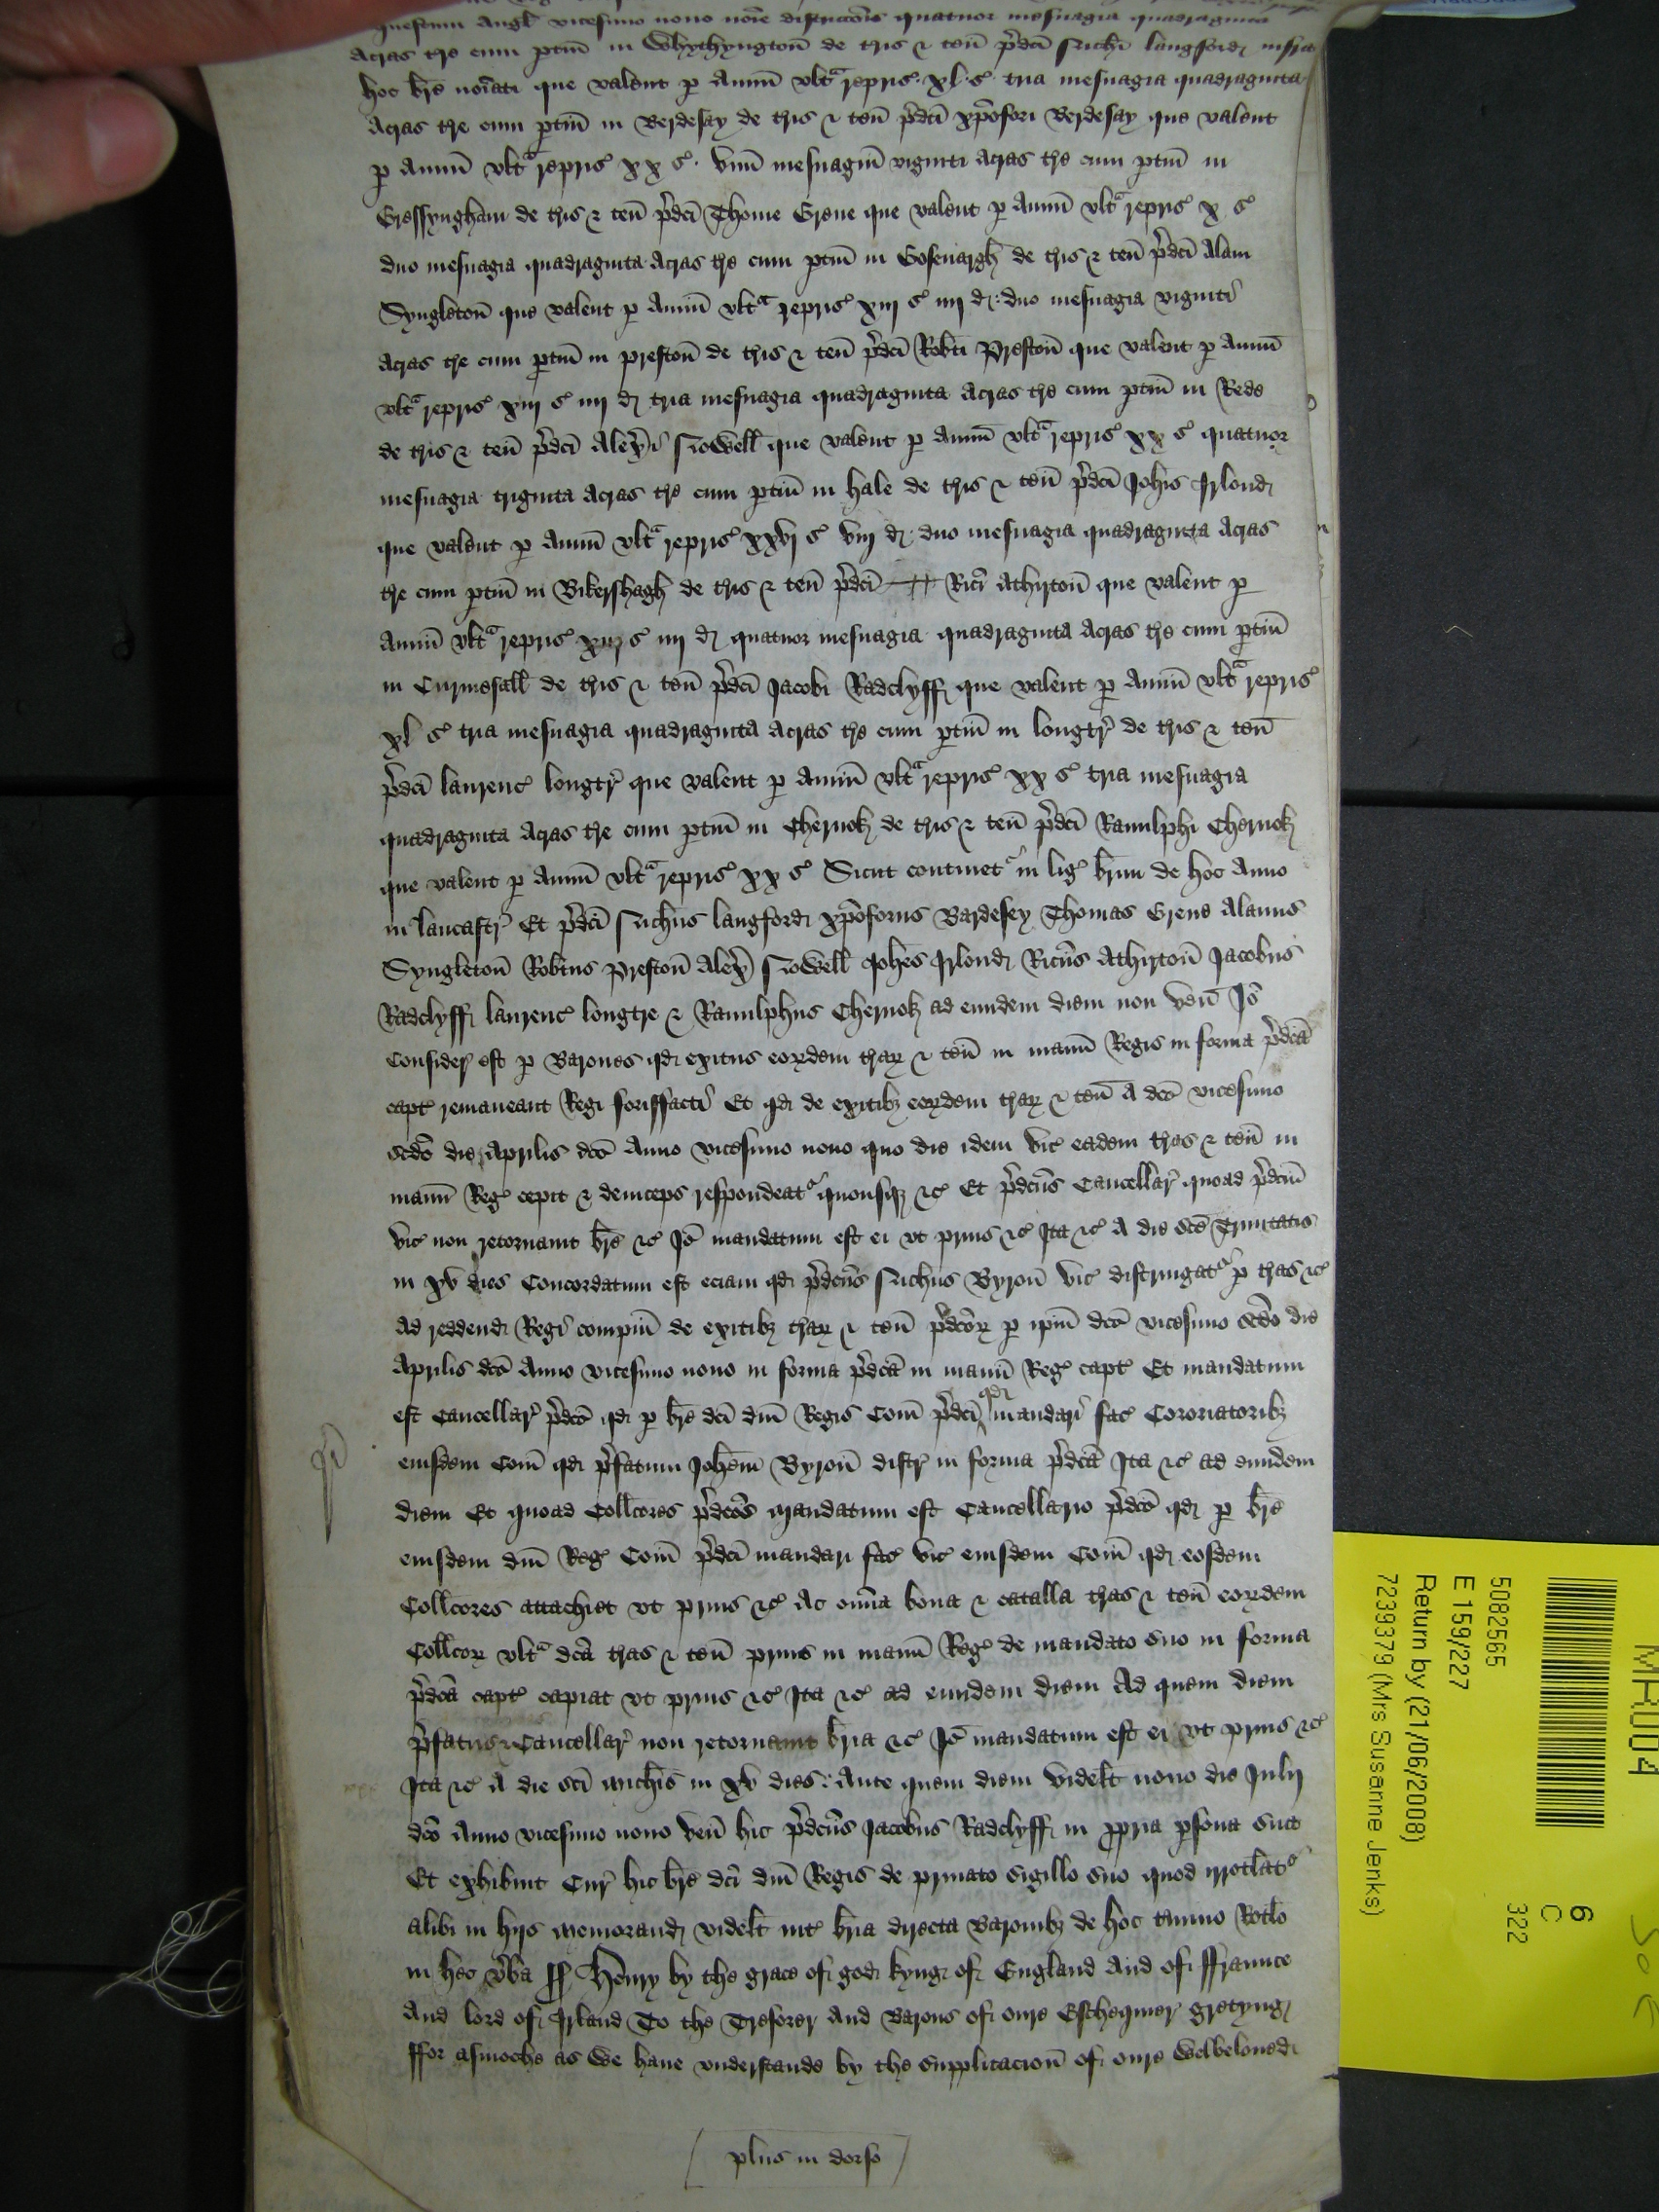 questum Angl vicesimo nono noie districcois quatuor mesuagia quadraginta
acras tre cum ptin in Whythyngton de tris & ten pdci Nichi langford infra
hoc bre noiati que valent p annu ult repris xl s tria mesuagia quadraginta
acras tre cum ptin in Berdesay de tris & ten pdci xpofori Berdesay que valent
p annu ult repris xx s unu mesuagiu viginti acras tre cum ptin in
Gressyngham de tris & ten pdci Thome Grene que valent p annu ult repris x s
duo mesuagia quadraginta acras tre cum ptin in Gosenargh de tris & ten pdci Alani
Syngleton que valent p annu ult repris xiij s iiij d duo mesuagia viginti
acras tre cum ptin in preston de tris & ten pdci Robti Preston que valent p annu
ult repris xiij s iiij d tria mesuagia quadraginta acras tre cum ptin in Rede
de tris & ten pdci Alexi Nowell que valent p annu ult repris xx s quatuor
mesuagia triginta acras tre cum ptin in hale de tris & ten pdci Johis Irlond
que valent p annu ult repris xxvj s viij d duo mesuagia quadraginta acras
tre cum ptin in Bikershagh de tris & ten pdci Rici Athirton que valent p
annu ult repris xiij s iiij d quatuor mesuagia quadraginta acras tre cum ptin
in Curmesall de tris & ten pdci Jacobi Radclyff que valent p annu ult repris
xl s tria mesuagia quadraginta acras tre cum ptin in longtr de tris & ten
pdci laurenc longtr que valent p annu ult repris xx s tria mesuagia
quadraginta acras tre cum ptin in Chernok de tris & ten pdci Ranulphi Chernok
que valent p annu ult repris xx s Sicut continet in lig brium de hoc anno
in lancastr Et pdci Nichus langford xpoforus Bardesey Thomas Grene Alanus
Syngleton Robtus Preston Alex Nowell Johes Irlond Ricus Athirton Jacobus
Radclyff laurenc longtre & Ranulphus Chernok ad eundem diem non ven Jo
consider est p Barones qd exitus eordem trar & ten in manu Regis in forma pdca
capt remaneant Regi foriffacti Et qd de exitib eordem trar & ten a dco vicesimo
scdo die Aprilis dco anno vicesimo nono quo die idem vic eadem tras & ten in
manu Reg cepit & deinceps respondeat quousq &c Et pdcus Cancellar quoad pdcum
vic non retornauit bre &c Jo mandatum est ei ut prius &c Ita &c A die sce Trinitatis
in xv dies Concordatum est eciam qd pdcus Nichus Byron vic distringat p tras &c
ad reddend Regi compum de exitib trar & ten pdcor p ipm dco vicesimo scdo die
Aprilis dco anno vicesimo nono in forma pdca in manu Reg capt Et mandatum
est Cancellar pdco qd p bre dci dni Regis Com pdci qd mandari fac Coronatorib
eiusdem Com qd pfatum Johem Byron distr in forma pdca Ita &c ad eundem
diem Et quoad Collcores pdcos mandatum est Cancellario pdco qd p bre
eiusdem dni Reg Com pdci mandari fac vic eiusdem Com qd eosdem
Collcores attachiet ut prius &c Ac omia bona & catalla tras & ten eordem
Collcor ult dca tras & ten prius in manu Reg de mandato suo in forma
pdca capt capiat ut prius &c Ita &c ad eundem diem Ad quem diem
pfatus Cancellar non retornauit bria &c Jo mandatum est ei ut prius &c
Ita &c A die sci michis in xv dies Ante quem diem videlt nono die Julij
dco anno vicesimo nono ven hic pdcus Jacobus Radclyff in ppria psona sua
Et exhibuit Cur hic bre dci dni Regis de priuato sigillo suo quod irrotlat
alibi in hijs memorand videlt int bria directa Baronib de hoc tmino Rotlo
in hec vba Henry by the grace of god kyng of England and of ffraunce
and lord of Irland To the Tresorer and Barons of oure Eschequier gretyng
ffor asmoche as We haue understande by the supplicacion of oure Welbeloued
plus in dorso
5082565
E 159/227
Return by (21/06/2008)
7239379 (Mrs Susanne Jenks)
6
C
322